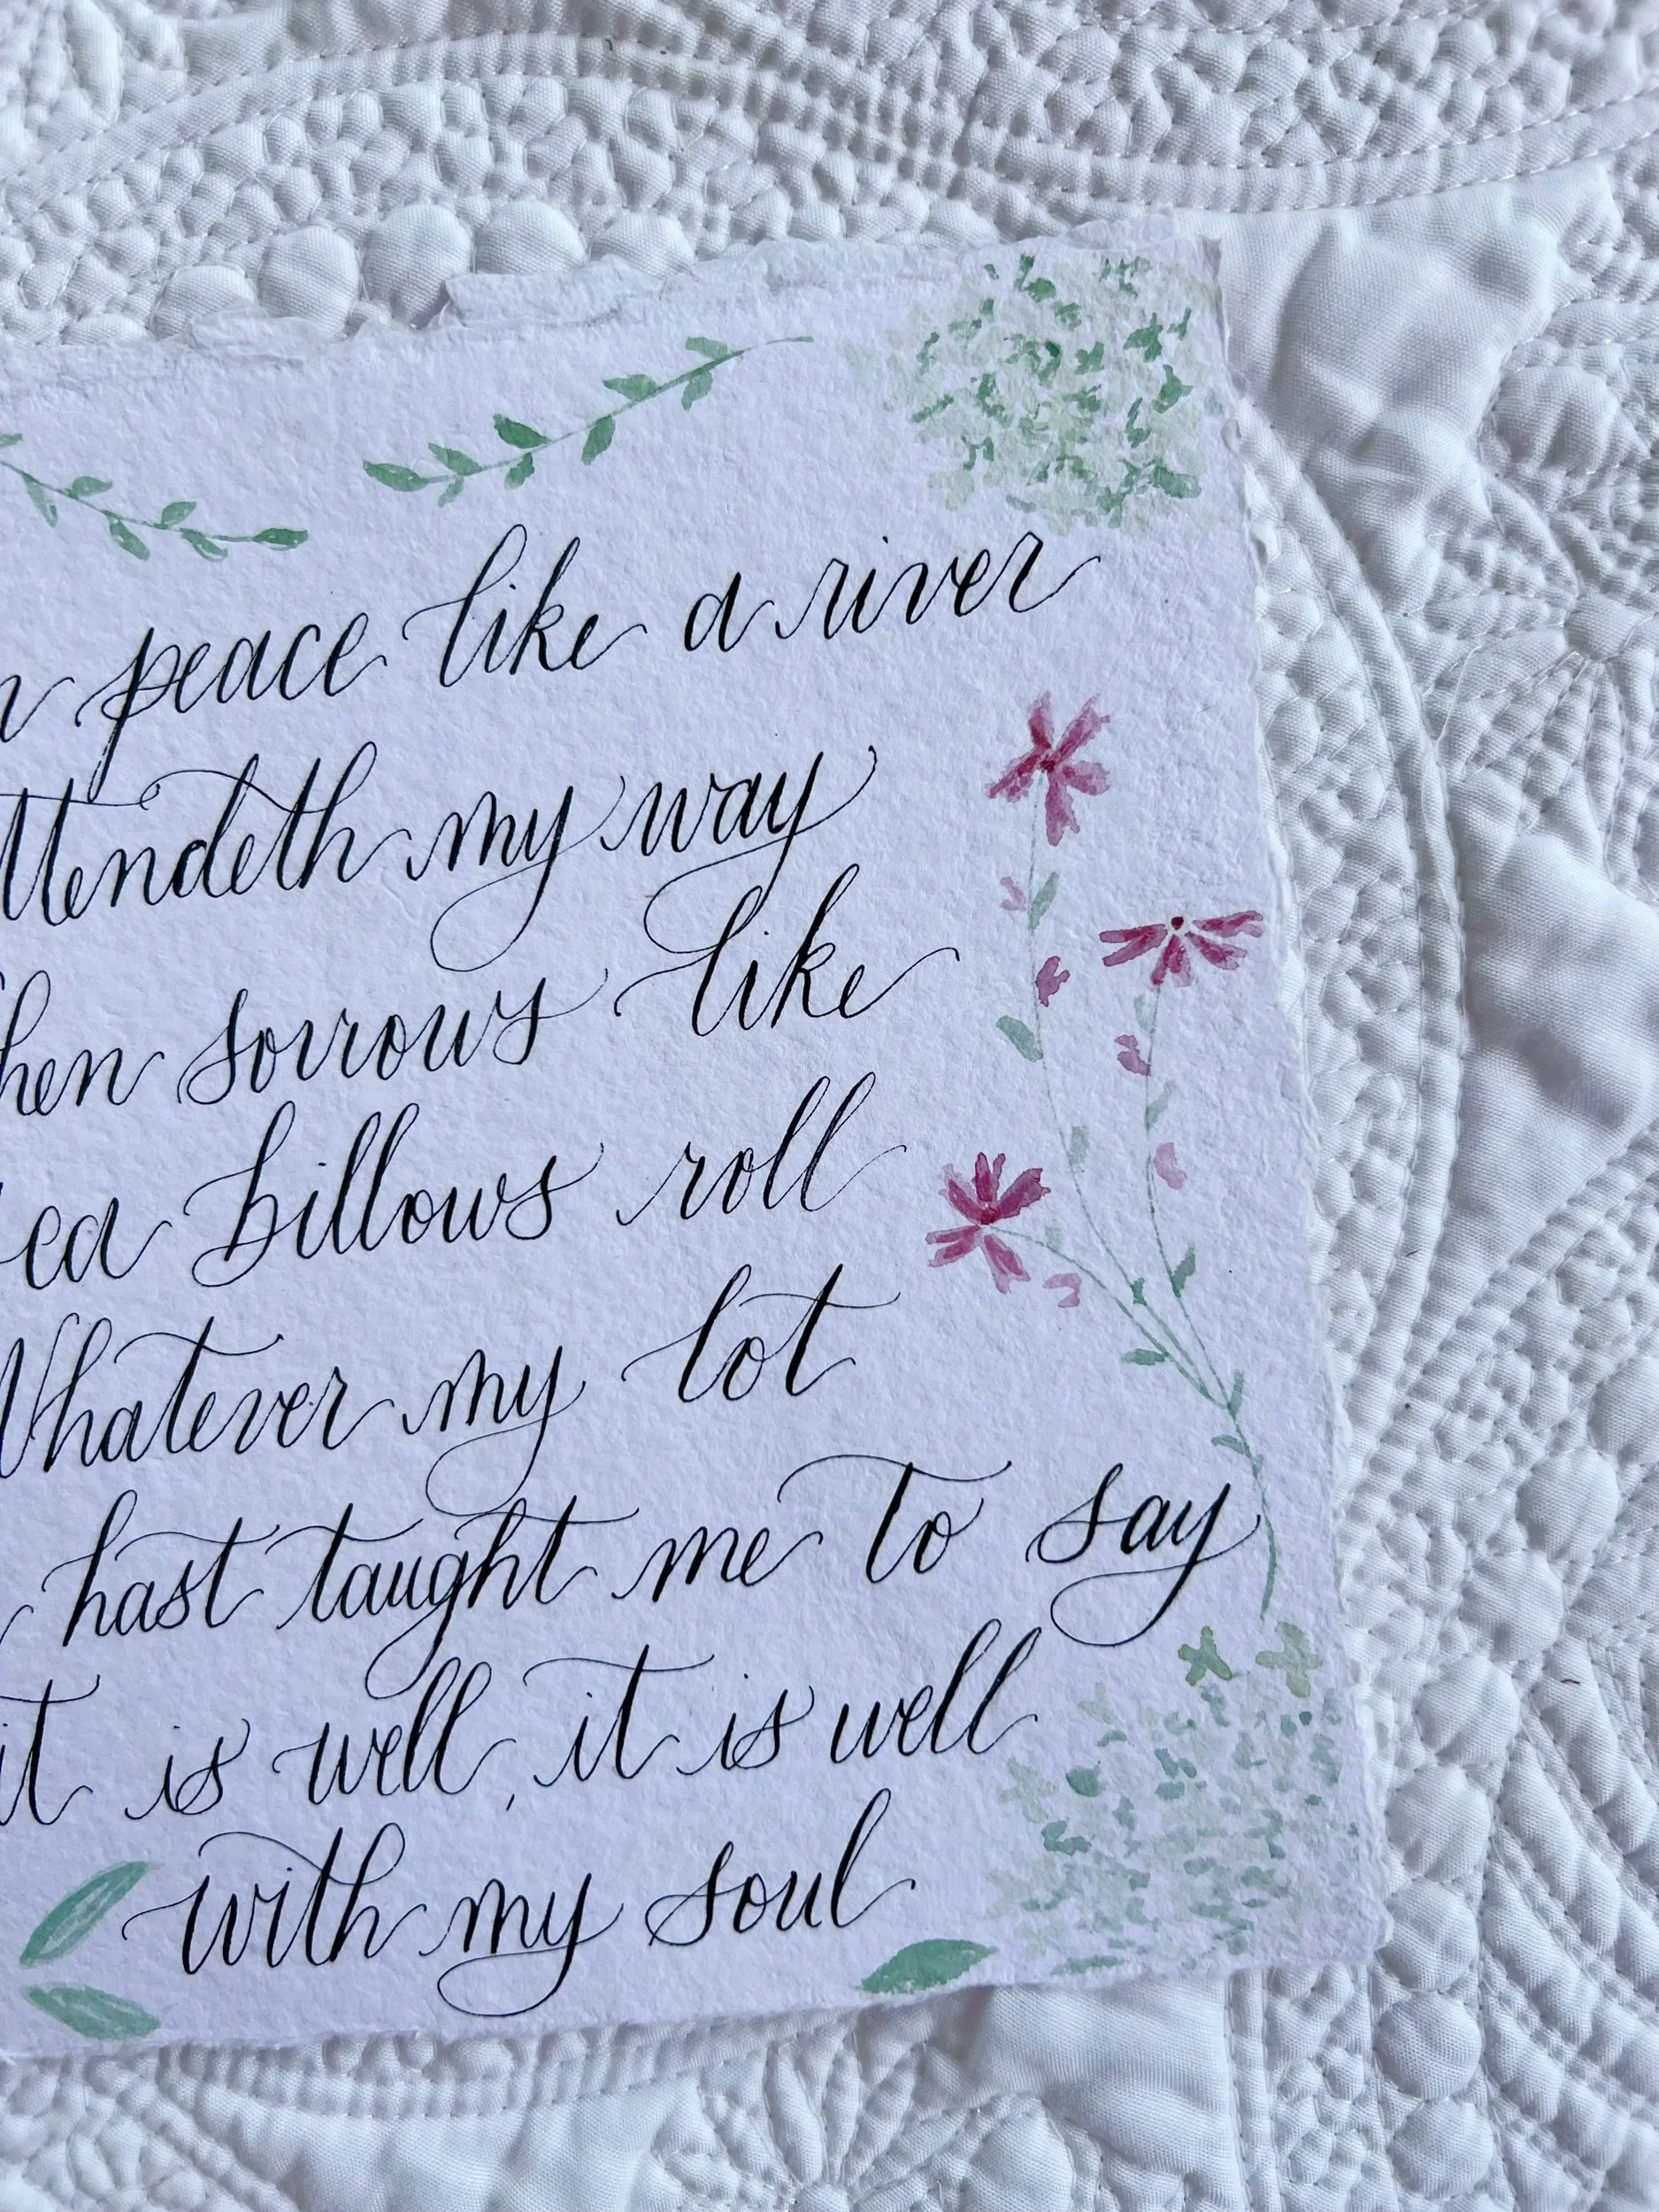 n peace like a river
ttendeth my way
hen sorrows like
ea billows roll
Whatever my lot
hast taught me to say
it is well, it is well
with my soul